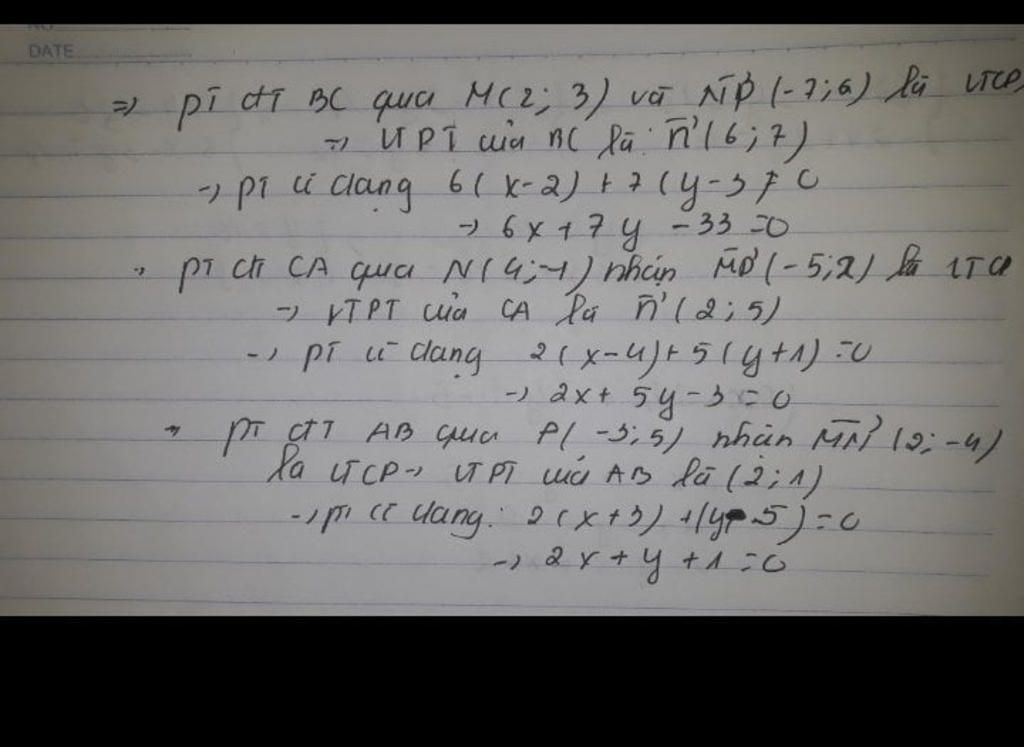 DATE
=> PT đT BC qua M(2; 3) và NP(-7; 6) là VTCP
-> VTPT của BC là: n(6; 7)
-> PT có dạng 6(x-2) + 7(y-3) = 0
-> 6x + 7y - 33 = 0
-> PT đT CA qua N(4; -1) nhận MP(-5; 2) là VTCP
-> VTPT của CA là n(2; 5)
-> PT có dạng 2(x-4) + 5(y+1) = 0
-> 2x + 5y - 3 = 0
-> PT đT AB qua P(-3; 5) nhận MN(2; -4)
là VTCP -> VTPT của AB là (2; 1)
-> PT có dạng: 2(x+3) + (y-5) = 0
-> 2x + y + 1 = 0